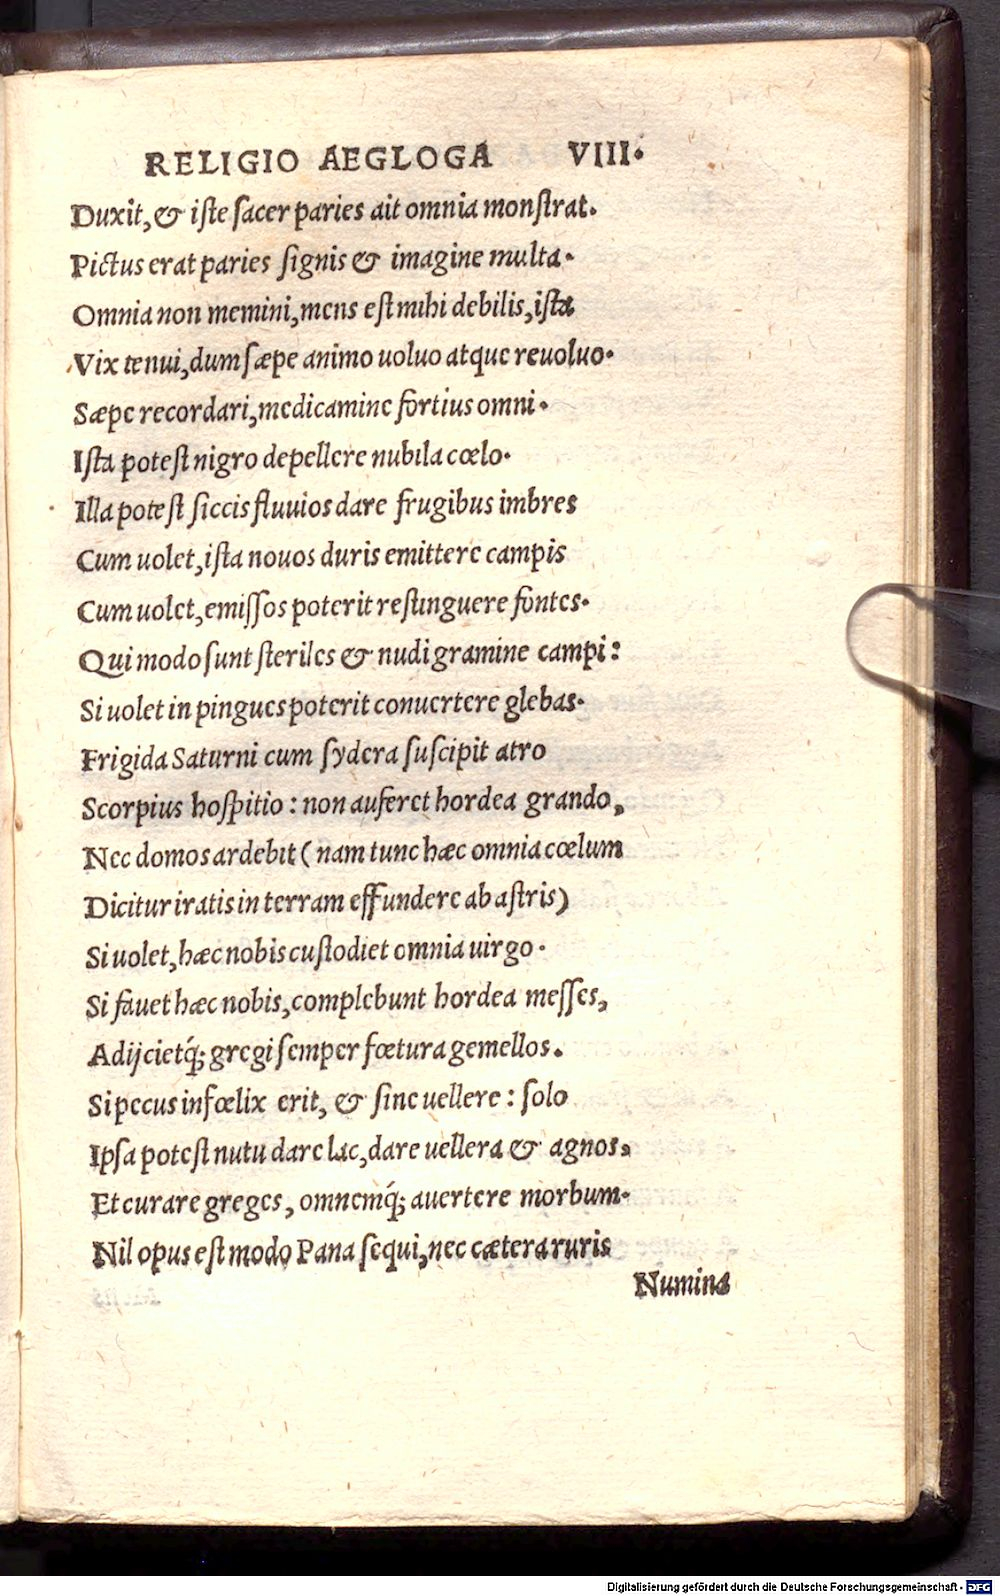 RELIGIO AEGLOGA VIII.
Duxit, & iſte ſacer paries ait omnia monſtrat.
Pictus erat paries ſignis & imagine multa.
Omnia non memini, mens eſt mihi debilis, iſta
Vix tenui, dum ſæpe animo uoluo atque reuoluo.
Sæpe recordari, medicamine fortius omni.
Iſta poteſt nigro depellere nubila cœlo.
Illa poteſt ſiccis fluuios dare frugibus imbres
Cum uolet, iſta nouos duris emittere campis
Cum uolet, emiſſos poterit reſtinguere fontes.
Qui modo ſunt ſteriles & nudi gramine campi:
Si uolet in pingues poterit conuertere glebas.
Frigida Saturni cum ſydera ſuſcipit atro
Scorpius hoſpitio: non auferet hordea grando,
Nec domos ardebit (nam tunc hæc omnia cœlum
Dicitur iratis in terram effundere ab aſtris)
Si uolet, hæc nobis cuſtodiet omnia uirgo.
Si fauet hæc nobis, complebunt hordea meſſes,
Adijcietq́; gregi ſemper fœtura gemellos.
Si pecus infœlix erit, & ſine uellere: ſolo
Ipſa poteſt nutu dare lac, dare uellera & agnos,
Et curare greges, omnemq́; auertere morbum.
Nil opus eſt modo Pana ſequi, nec cætera ruris
Numina
Digitalisierung gefördert durch die Deutsche Forschungsgemeinschaft - DFG